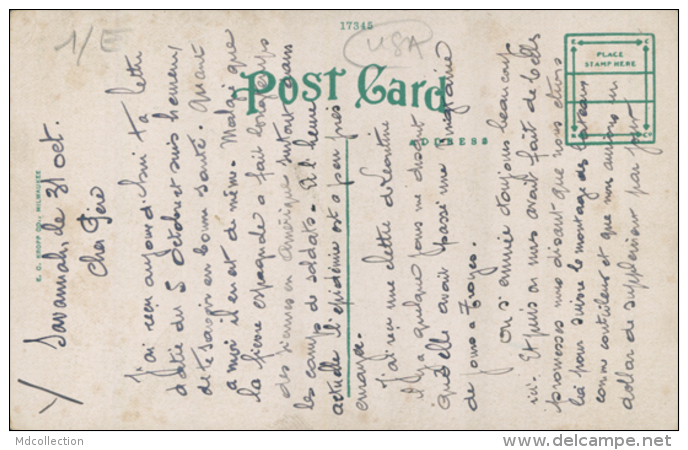 17345
1/
USA
POST CARD
ADDRESS
PLACE
STAMP HERE
E. C. KROPP CO., MILWAUKEE
Savannah, le 31 oct.
Cher Père
J'ai reçu aujourd'hui ta lettre
datée du 5 Octobre et suis heureux
de te savoir en bonne santé. Quant
à moi il en est de même. Malgré que
la fièvre espagnole a fait longtemps
des siennes en Amérique surtout dans
les camps de soldats. À l'heure
actuelle l'épidémie est à peu près
enrayée.
J'ai reçu une lettre d'Léontine
il y a quelques jours me disant
qu'elle avait passé une
de jours à Troyes.
On s'ennuie toujours beaucoup
ici. Et puis on nous avait fait de belles
promesses nous disant que nous étions
ici pour suivre le montage des bateaux
comme contrôleurs et que nous aurions un
dollar de supplément par jour
Mdcollection
www.delcampe.net